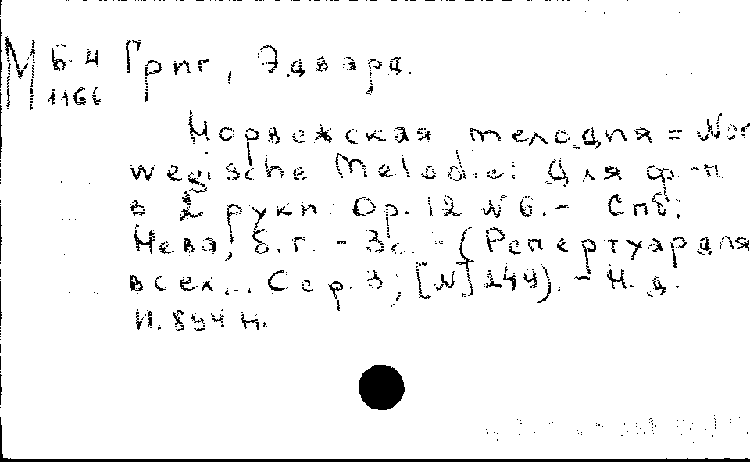 М Б-4 Григ, Эдвард.
1166
Норвежская мелодия = Nor
wegische Melodie: Для ф-п
в 2 руки. Op. 12 № 6. - Спб:
Нева, б.г. - 3с. - (Репертуар для
всех... Сер. 3; [№] 244). - Н. д.
Н. 844 Н.